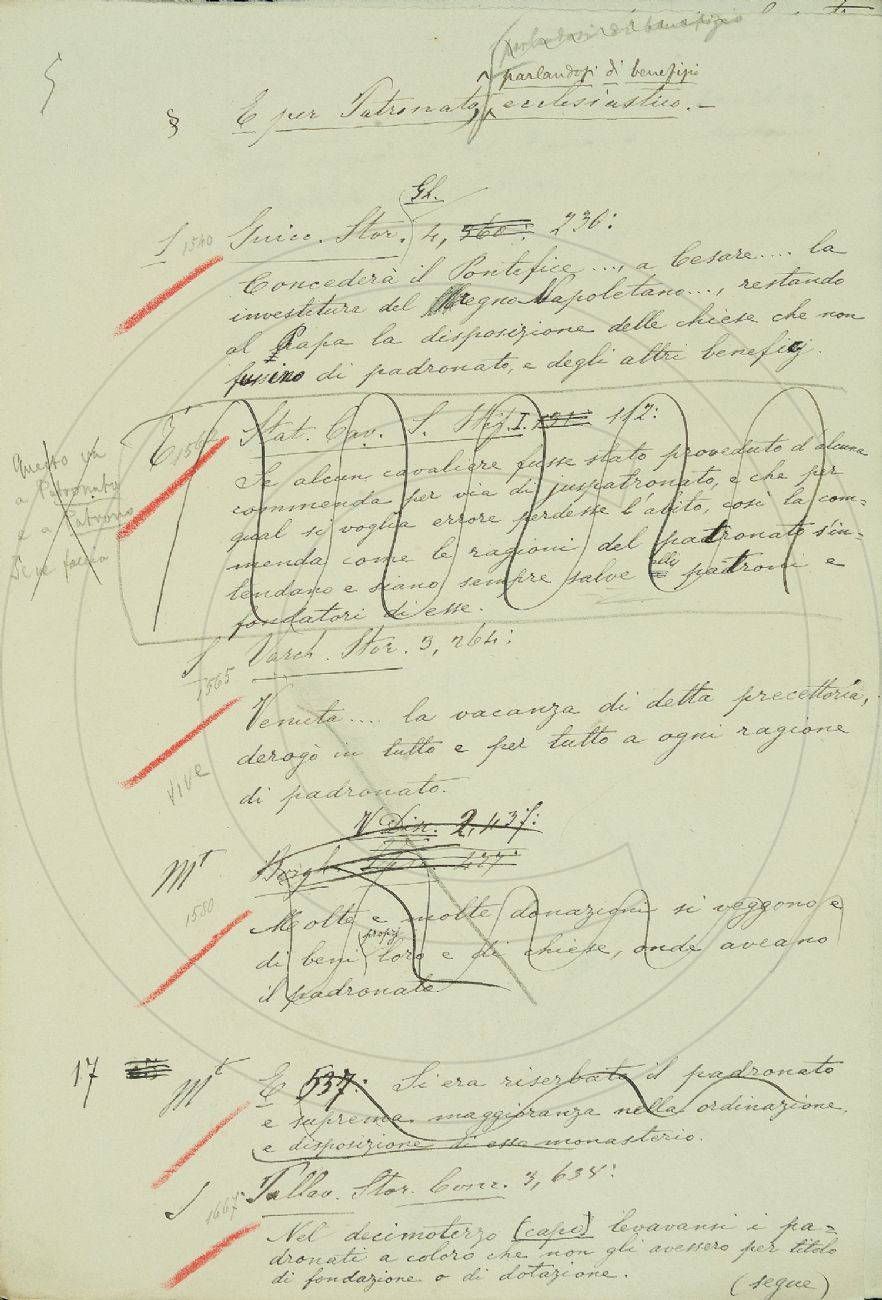 5
parlandosi di benefizio
parlandosi di benefizio
§ E per Patronato, ecclesiastico. –
Gh.
S 1540 Guicc. Stor. 4, 360: 230:
Concederà il Pontefice...., a Cesare.... la
investitura del Regno Napoletano..., restando
al Papa la disposizione delle chiese che non
fussino di padronato, e degli altri benefizj.
E Stat. Cav. S. Stef. I. 191 112:
Se alcun cavaliere fusse stato proveduto d'alcuna
commenda per via di juspatronato, e che per
qual si voglia errore perdesse l'abito, così la com-
menda come le ragioni del padronato s'in-
tendano e siano sempre salve alli padroni e
fondatori di esse.
Questo va
a Patronato
e a Patrono
Si ne faccia
S 1565 Varch. Stor. 3, 264:
Venuta.... la vacanza di detta precettoria,
derogò in tutto e per tutto a ogni ragione
di padronato.
vive
V Din. 2, 437:
Mt 1580 Borgh. 427:
Molte e molte donazioni si veggono e
di beni propj loro e di chiese, onde aveano
il padronato.
17 Mt E 537: Si era riserbato il padronato
e suprema maggioranza nella ordinazione,
e disposizione di esso monasterio.
S 1667 Pallav. Stor. Conc. 3, 638:
Nel decimoterzo (capo) levavansi i pa-
dronati a coloro che non gli avessero per titolo
di fondazione o di dotazione.
(segue)